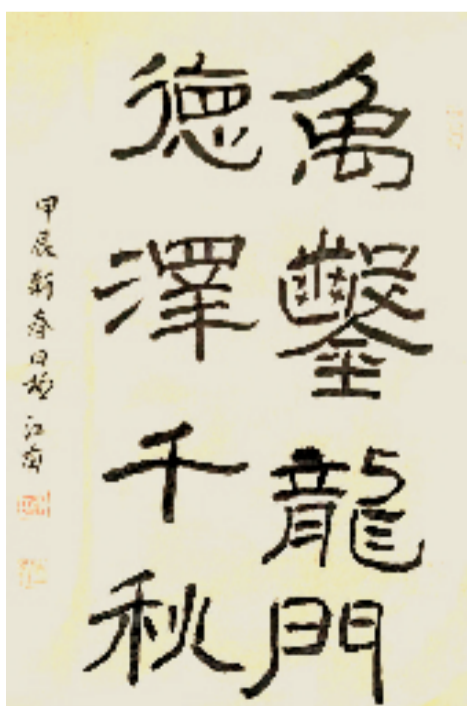 禹鑿龍門
德澤千秋
甲辰新春日於江南